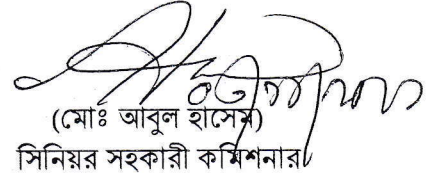 (মোঃ আবুল হাসেম)
সিনিয়র সহকারী কমিশনার